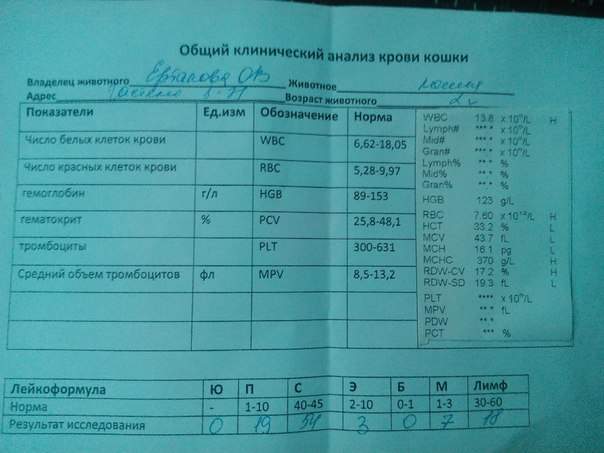 Общий клинический анализ крови кошки
Владелец животного Животное кошка
Адрес Возраст животного
Показатели Ед.изм Обозначение Норма
Число белых клеток крови WBC 6,62-18,05
Число красных клеток крови RBC 5,28-9,97
гемоглобин г/л HGB 89-153
гематокрит % PCV 25,8-48,1
тромбоциты PLT 300-631
Средний объем тромбоцитов фл MPV 8,5-13,2
WBC 13.8 x 10⁹/L H
Lymph# *** * x 10⁹/L
Mid# *** * x 10⁹/L
Gran# *** * x 10⁹/L
Lymph% ** * %
Mid% ** * %
Gran% ** * %
HGB 123 g/L
RBC 7.60 x 10¹²/L H
HCT 33.2 % L
MCV 43.7 fL L
MCH 16.1 pg L
MCHC 370 g/L H
RDW-CV 17.2 % H
RDW-SD 19.3 fL L
PLT **** x 10⁹/L
MPV ** * fL
PDW ** *
PCT *** %
Лейкоформула Ю П С Э Б М Лимф
Норма - 1-10 40-45 2-10 0-1 1-3 30-60
Результат исследования 0 19 54 3 0 7 18